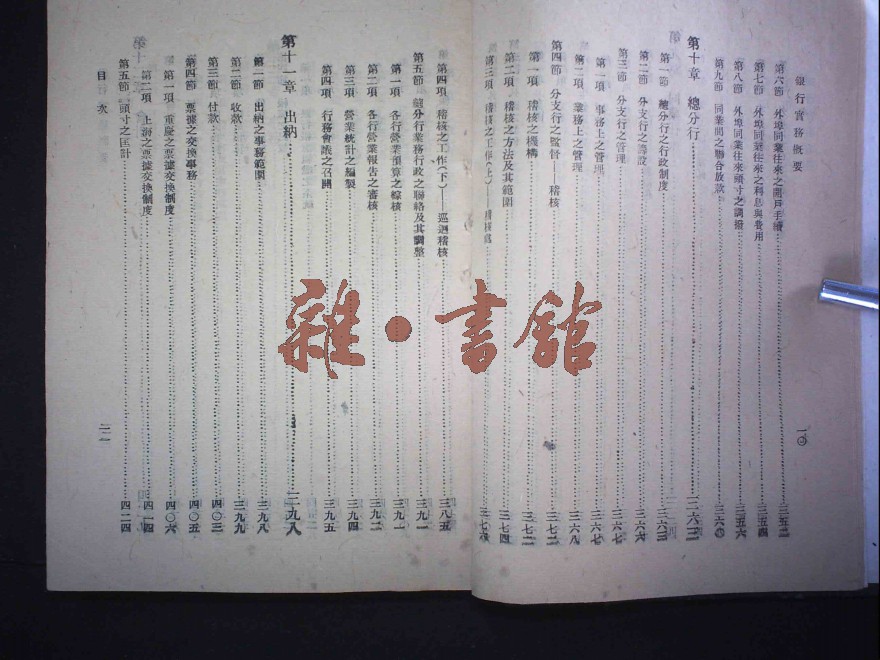 銀行實務概要
一〇
第六節 外埠同業往來之開戶手續……三五二
第七節 外埠同業往來之利息與費用……三五四
第八節 外埠同業往來頭寸之調撥……三五六
第九節 同業間之聯合放款……三六〇
第十章 總分行……三六三
第一節 總分行之行政制度……三六三
第二節 分支行之籌設……三六六
第三節 分支行之管理……三六七
第一項 事務上之管理……三六七
第二項 業務上之管理……三六八
第四節 分支行之監督——稽核……三七二
第一項 稽核之機構……三七二
第二項 稽核之方法及其範圍……三七四
第三項 稽核之工作(上)——稽核處……三七六
第四項 稽核之工作(下)——巡迴稽核……三八五
第五節 總分行業務行政之聯絡及其調整……三九一
第一項 各行營業預算之綜核……三九一
第二項 各行營業報告之審核……三九二
第三項 營業統計之編製……三九四
第四項 行務會議之召開……三九五
第十一章 出納……三九八
第一節 出納之事務範圍……三九八
第二節 收款……三九九
第三節 付款……四〇三
第四節 票據之交換事務……四〇五
第一項 重慶之票據交換制度……四〇六
第二項 上海之票據交換制度……四一四
第五節 頭寸之匡計……四二四
目 次
一一
雜·書館